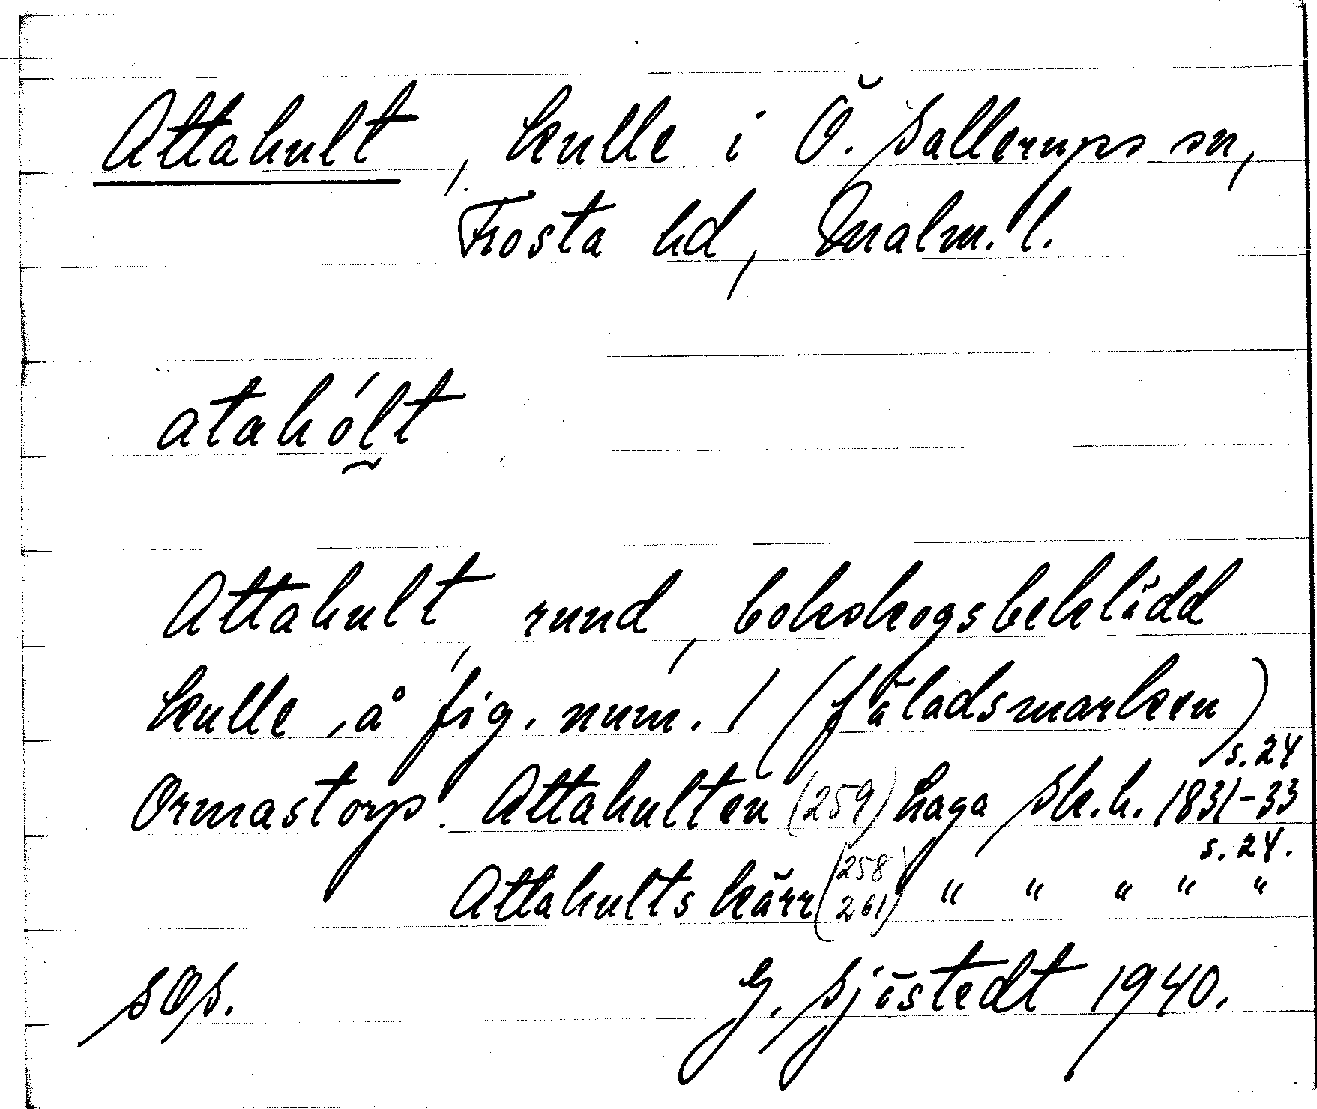 Attahult, kulle i Ö. Sallerups sn,
Frosta hd, Malm. l.
atahólt
Attahult, rund, bokskogsbeklädd
kulle, å fig. num. 1 (fäladsmarken)
s. 24
Ormastorp. Attahulten (259) haga Sk.h. 1831-33
s. 24.
Attahults kärr (258 261) " " " " "
SOS. G. Sjöstedt 1940.